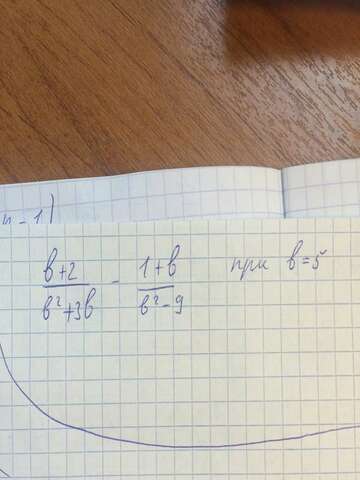 n - 1)
(в+2)/(в²+3в) - (1+в)/(в²-9) при в=5